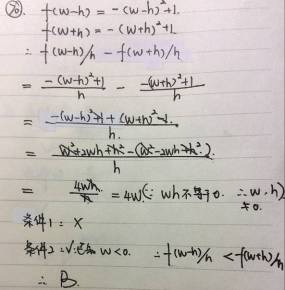 ⑳. f(w-h) = -(w-h)²+1.
f(w+h) = -(w+h)²+1.
∴ f(w-h)/h - f(w+h)/h
= -(w-h)²+1/h - -(w+h)²+1/h
= -(w-h)²+1+(w+h)²-1/h.
= w²+2wh+h²-(w²-2wh+h²)/h
= 4wh/h = 4w(∵ wh不等于0. ∴w,h) ≠0.
条件1: X
条件2: √. 已知 w<0. ∴ f(w-h)/h < f(w+h)/h
∴ B.